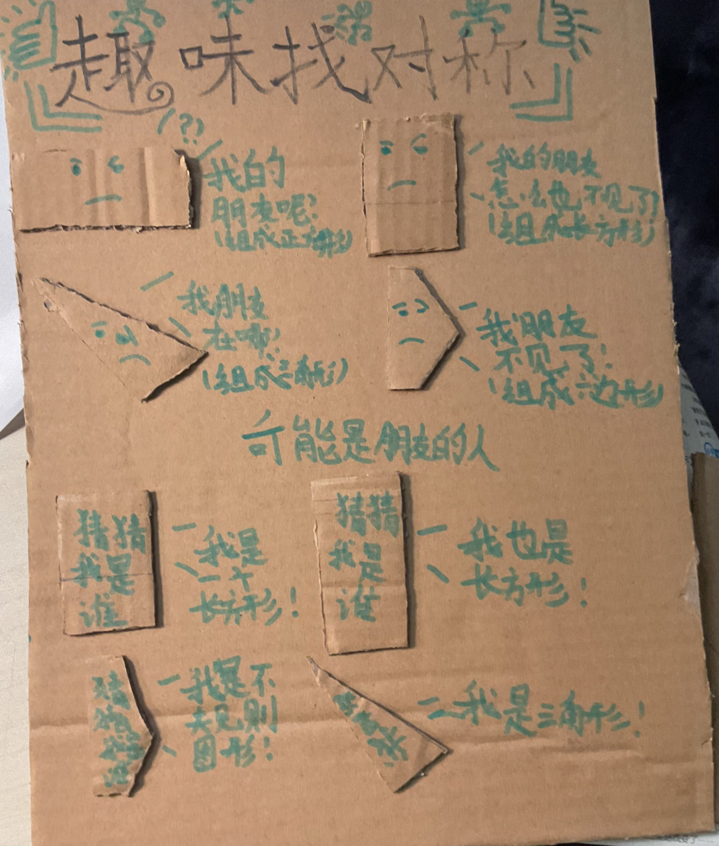 趣味找对称
??
我的
朋友呢?
(组成正方形)
我的朋友
怎么也不见了?
(组成长方形)
我朋友
在哪?
(组成三角形)
我朋友
不见了!
(组成六边形)
可能是朋友的人
猜猜
我是
谁
我是
一个
长方形!
猜猜
我是
谁
我也是
长方形!
猜
猜
我是
谁
我是不
规则
图形!
我是三角形!